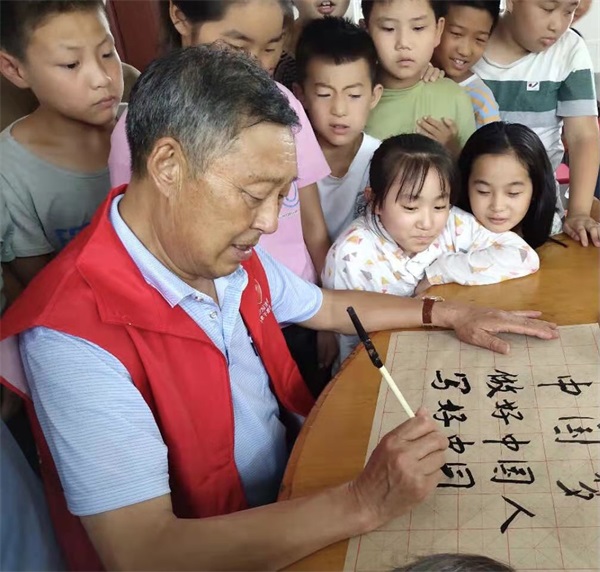 中国
做好中国人
写好中国